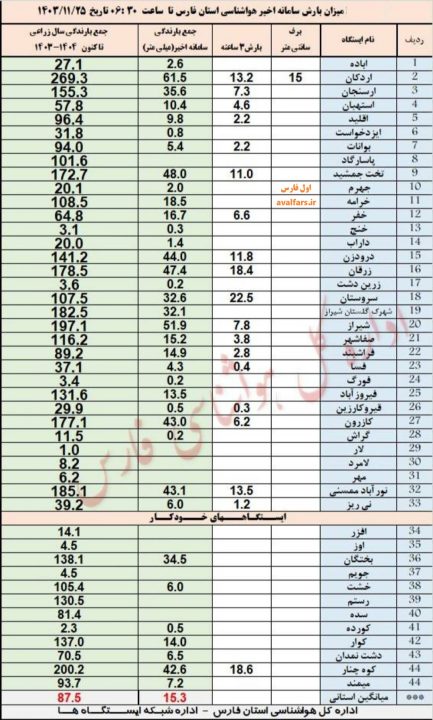 میزان بارش سامانه اخیر هواشناسی استان فارس تا ساعت 06:30 تاریخ 1403/11/25
ردیف نام ایستگاه برف سانتی متر بارش ۳ ساعته جمع بارندگی سامانه اخیر(میلی متر) جمع بارندگی سال زراعی تا کنون ۱۴۰۴-۱۴۰۳
1 اباده 2.6 27.1
2 اردکان 15 13.2 61.5 269.3
3 ارسنجان 7.3 35.6 155.3
4 استهبان 4.6 10.4 57.8
5 اقلید 2.2 9.8 96.4
6 ایزدخواست 0.8 31.8
7 بوانات 2.2 5.4 94.0
8 پاسارگاد 101.6
9 تخت جمشید 11.0 48.0 172.7
10 جهرم اول فارس 2.0 20.1
11 خرامه avalfars.ir 18.5 108.5
12 خفر 6.6 16.7 64.8
13 خنج 0.3 3.1
14 داراب 1.4 20.0
15 درودزن 11.8 44.0 141.2
16 زرقان 18.4 47.4 178.5
17 زرین دشت 0.2 3.6
18 سروستان 22.5 32.6 107.5
19 شهرک گلستان شیراز 32.1 182.5
20 شیراز 7.8 51.9 197.1
21 صفاشهر 3.8 15.2 116.2
22 فراشبند 2.8 14.9 89.2
23 فسا 0.4 4.3 37.1
24 فورگ 0.2 3.4
25 فیروزآباد 13.5 131.6
26 قیروکارزین 0.3 0.5 29.9
27 کازرون 6.2 43.0 177.1
28 گراش 0.2 11.5
29 لار 1.0
30 لامرد 8.2
31 مهر 6.2
32 نورآباد ممسنی 13.5 43.1 185.1
33 نی ریز 1.2 6.0 39.2
ایستگاههای خودکار
34 افزر 14.1
35 اوز 4.5
36 بختگان 34.5 138.1
37 جویم 4.5
38 خشت 6.0 105.4
39 رستم 130.5
40 سده 81.4
41 کورده 0.5 2.3
42 کوار 14.0 137.0
43 دشت نمدان 6.5 70.5
44 کوه چنار 18.6 42.6 200.2
44 میمند 7.2 93.7
*** میانگین استانی 15.3 87.5
اداره کل هواشناسی استان فارس - اداره شبکه ایستگاه ها
اداره کل هواشناسی فارس